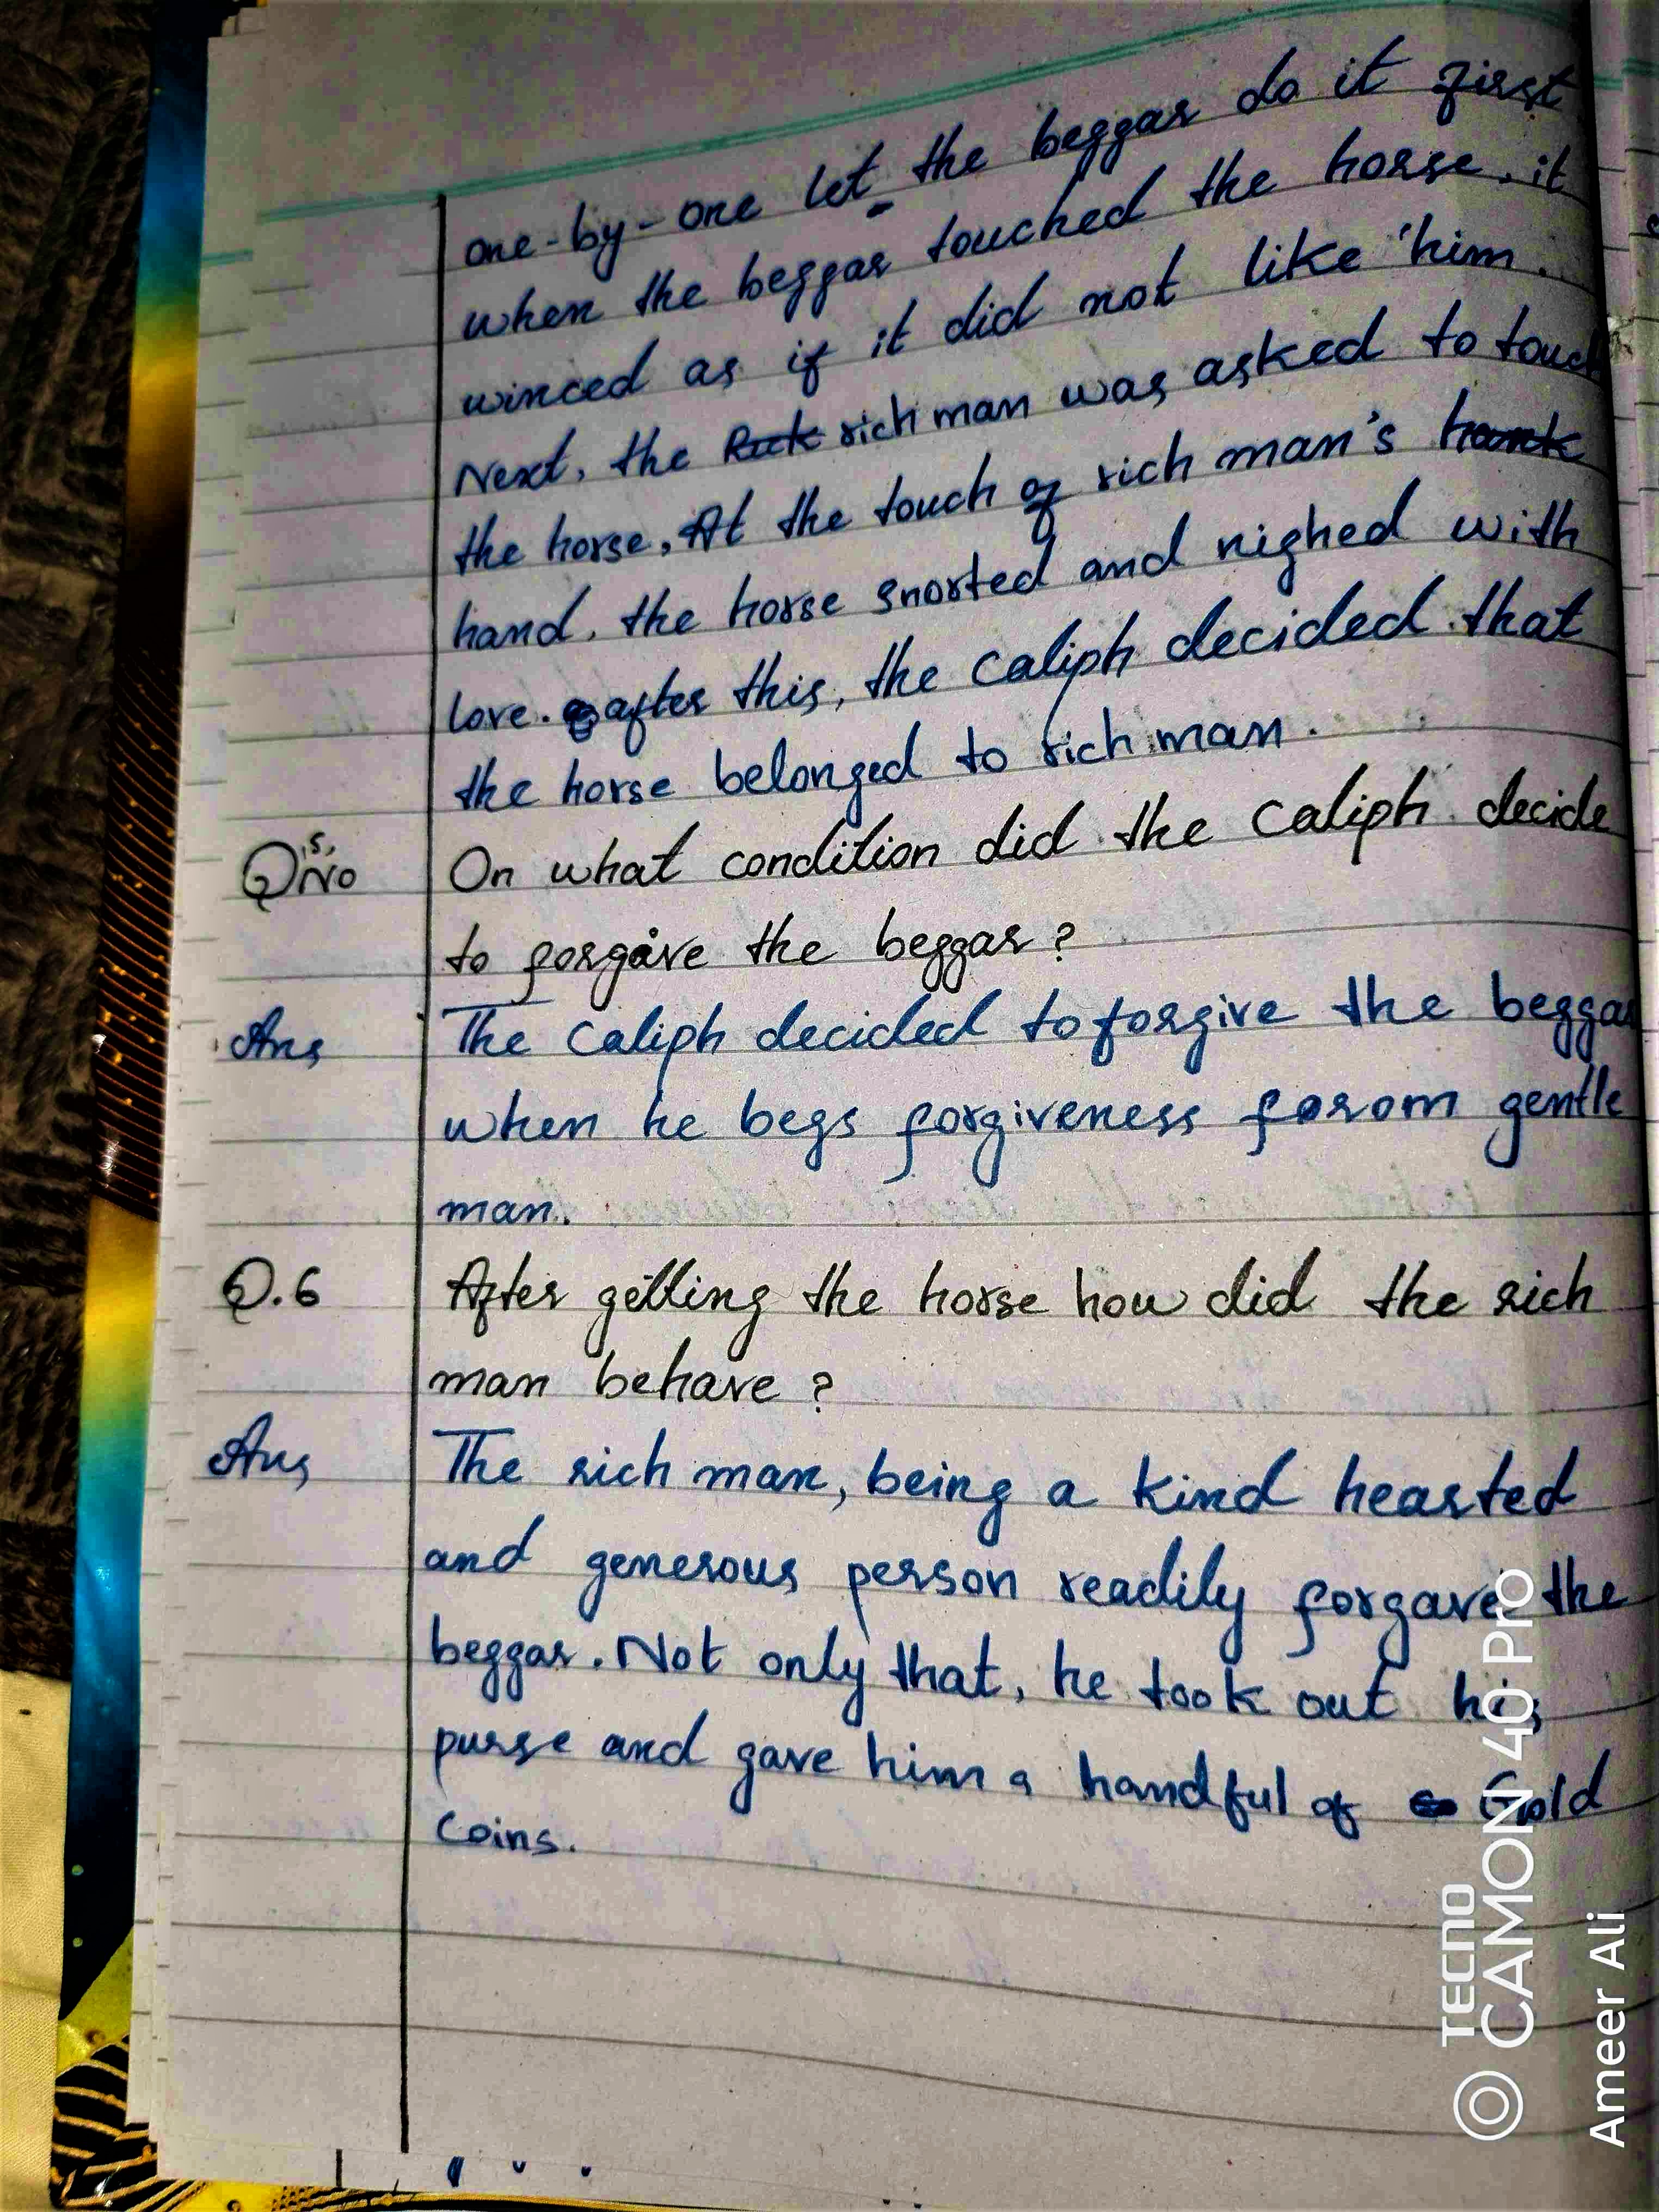 one-by-one let the beggar do it first
when the beggar touched the horse, it
winced as if it did not like him.
Next, the rich man was asked to touch
the horse, At the touch of rich man's
hand, the horse snorted and nighed with
love. after this, the caliph decided that
the horse belonged to rich man.
Q No 5, On what condition did the Caliph decide
to forgive the beggar?
Ans The Caliph decided to forgive the beggar
when he begs forgiveness forom gentle
man.
Q.6 After getting the horse how did the rich
man behave?
Ans The rich man, being a kind hearted
and generous person readily forgave the
beggar. Not only that, he took out his
purse and gave him a handful of Gold
Coins.
TECNO
CAMON 40 Pro
Ameer Ali